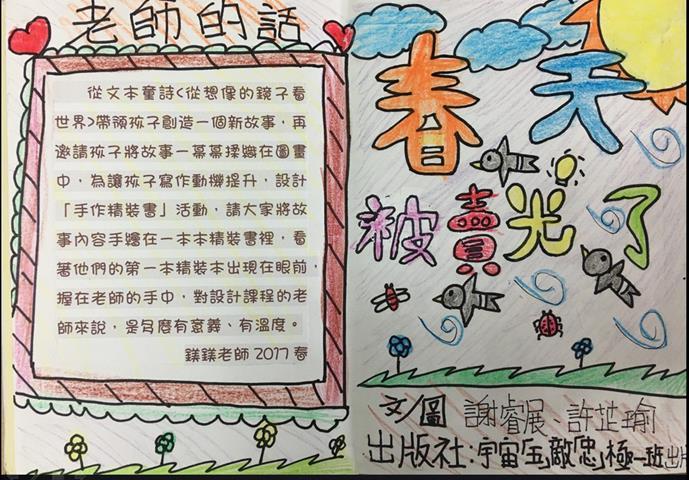 老師的話
從文本童詩<從想像的鏡子看
世界>帶領孩子創造一個新故事，再
邀請孩子將故事一幕幕揉繪在圖畫
中，為讓孩子寫作動機提升，設計
「手作精裝書」活動，請大家將故
事內容手繪在一本本精裝書裡，看
著他們的第一本精裝本出現在眼前，
握在老師的手中，對設計課程的老
師來說，是多麼有意義、有溫度。
鎂鎂老師 2017 春
春天
被賣光了
文/圖 謝睿展、許芷瑜
出版社:宇宙「五」敵「忠」極一班出片